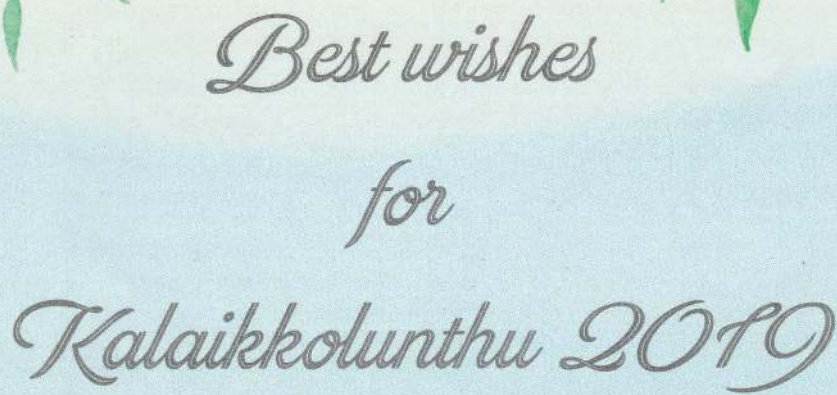 Best wishes
for
Kalaikkolunthu 2019